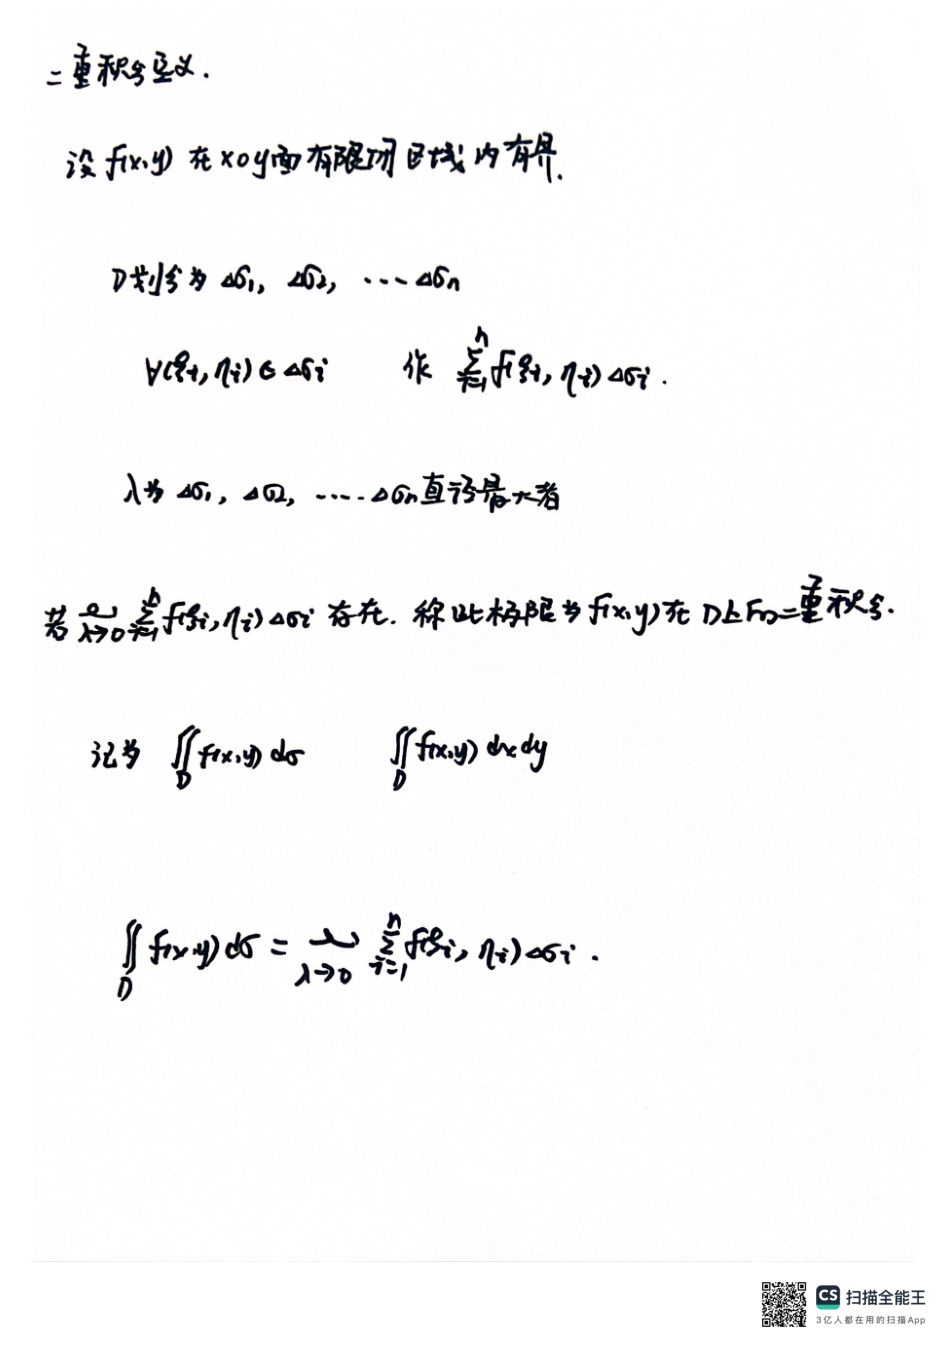 二重积分定义.
设 f(x,y) 在 xoy面有限闭区域内有界.
D划分为 Δσ1, Δσ2, ···Δσn
∀(ξi, ηi)∈Δσi 作 ∑_{i=1}^{n} f(ξi, ηi)Δσi.
λ为 Δσ1, Δσ2, ····Δσn直径最大者
若 lim_{λ→0} ∑_{i=1}^{n} f(ξi, ηi)Δσi 存在. 称此极限为 f(x,y)在 D上的二重积分.
记为 ∬_D f(x,y) dσ ∬_D f(x,y) dxdy
∬_D f(x,y) dσ = lim_{λ→0} ∑_{i=1}^{n} f(ξi, ηi)Δσi.
CS 扫描全能王
3亿人都在用的扫描App